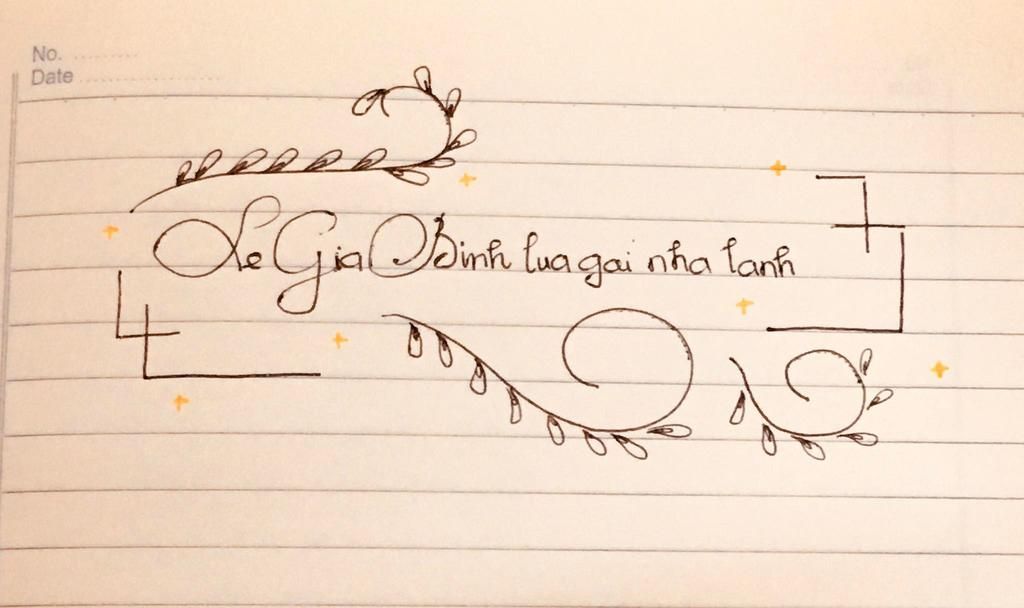 No. ..........
Date ......................
Le Gia Binh lua gai nha lanh